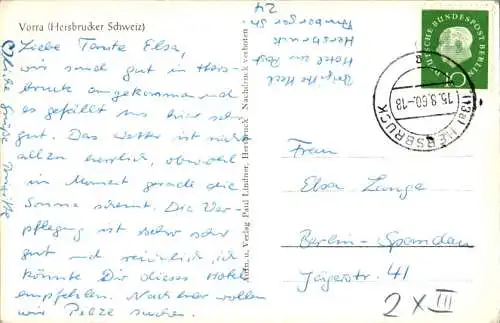 Vorra (Hersbrucker Schweiz)
Liebe Tante Elsa,
wir sind gut in Hers-
bruck angekommen und
es gefällt uns hier sehr
gut. Das Wetter ist nicht
allzu herrlich, obwohl
im Moment gerade die
Sonne scheint. Die Ver-
pflegung ist sehr sehr
gut und reichlich, ich
könnte Dir dieses Hotel
empfehlen. Nachher wollen
wir Pilze suchen.
Liebe Grüße Brigitte
Aufn. u. Verlag Paul Lindner, Hersbruck Nachdruck verboten
Brigitte
Hotel zur Post
Hersbruck
24
DEUTSCHE BUNDESPOST BERLIN
10
(13a) HERSBRUCK
15.9.60.-18
Frau
Elsa Lange
Berlin-Spandau
Jägerstr. 41
2 x III